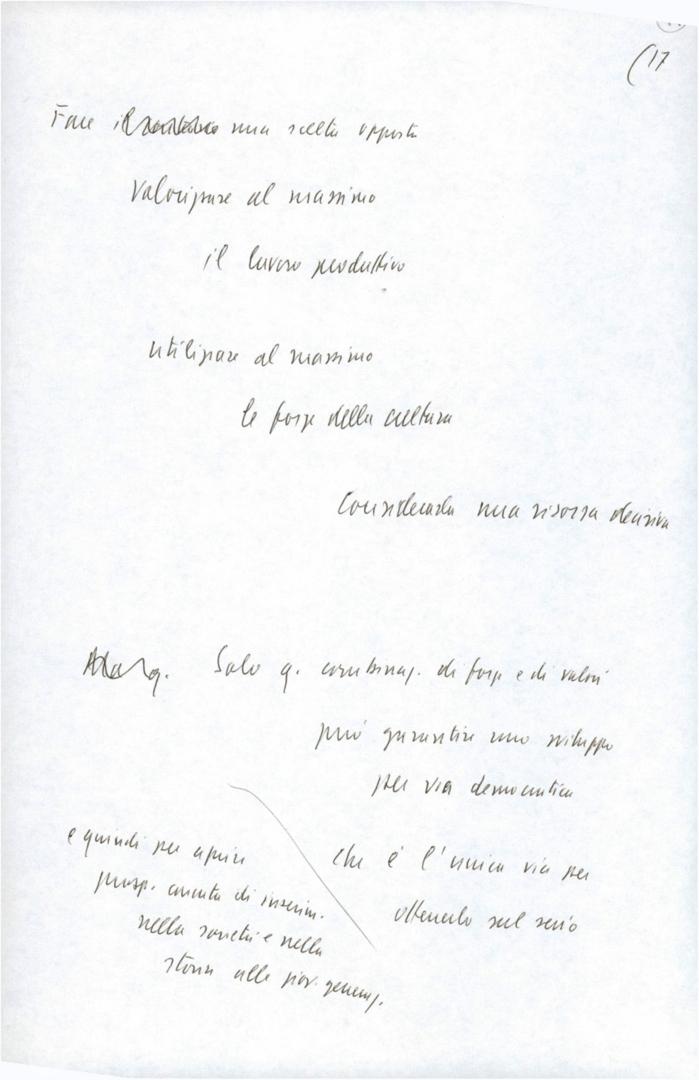 (17
Fare una scelta opposta
Valorizzare al massimo
il lavoro produttivo
utilizzare al massimo
le forze della cultura
Considerarla una risorsa decisiva
Solo q. combinaz. di forze e di valori
può garantire uno sviluppo
per via democratica
che è l'unica via per
ottenerlo sul serio
e quindi per aprire
prosp. concreta di inserim.
nella società e nella
storia alle giov. generaz.